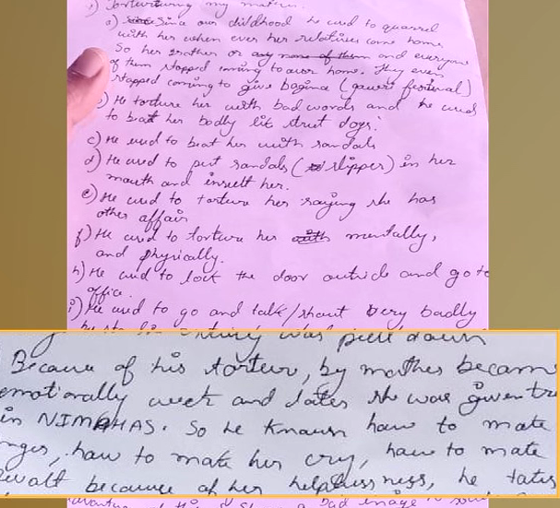 ) Torturing my
a) Since our childhood he used to quarrel
with her when ever her relatives come home.
So her brother or any none of them and everyone
of them stopped coming to our home. They even
stopped coming to give bagina (gawri festival)
b) He torture her with bad words and he used
to beat her badly lik street dogs.
c) He used to beat her with sandals
d) He used to put sandals (slipper) in her
mouth and insult her.
e) He used to torture her saying she has
other affair
f) He used to torture her with mentally,
and physically.
h) He used to lock the door outside and go to
office.
i) He used to go and talk/shout very badly
was
down
Because of his torture, by mother becam
emotionally week and later she was given tre
in NIMHAS. So he knows how to make
nger, how to make her cry, how to make
because of her helplessness, he takes
a bad image